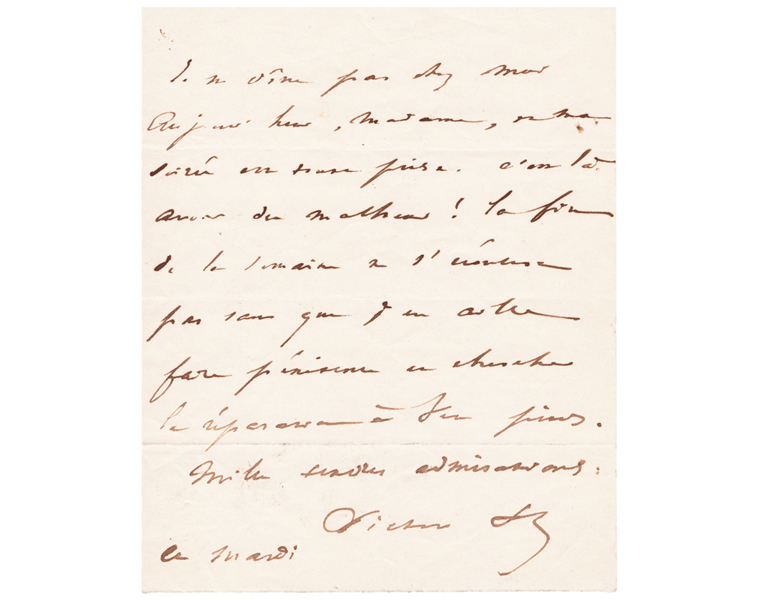 Je ne dîne pas chez moi
Aujourd'hui, Madame, et ma
soirée est toute prise. C'est là
avoir du malheur ! La fin
de la semaine ne s'écoulera
pas sans que j'en aille
faire pénitence et chercher
la réparation à vos pieds.
Mille tendres admirations.
Victor H
ce mardi